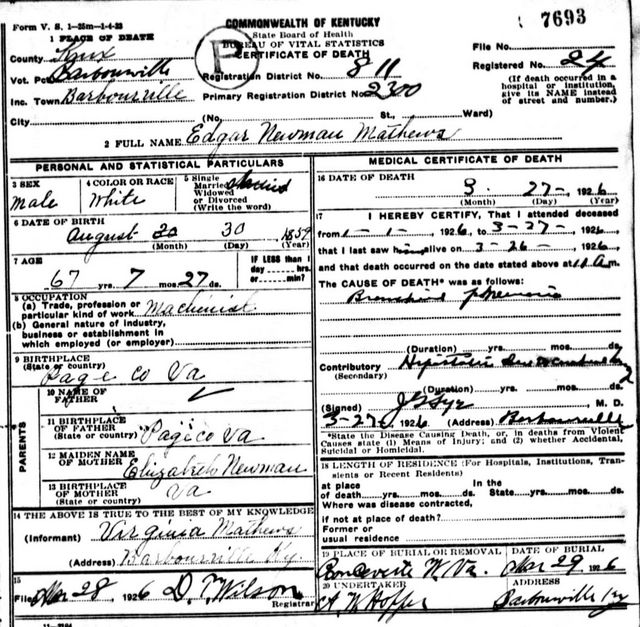 Form V. S. 1-25m-1-4-23
COMMONWEALTH OF KENTUCKY
State Board of Health
BUREAU OF VITAL STATISTICS
CERTIFICATE OF DEATH
7693
1 PLACE OF DEATH
County Knox
Vot. Pct. Barbourville
Inc. Town Barbourville
City
P
Registration District No. 811
Primary Registration District No. 2300
(No. St., Ward)
File No.
Registered No. 24
(If death occurred in a hospital or institution, give its NAME instead of street and number.)
2 FULL NAME Edgar Newman Mathews
PERSONAL AND STATISTICAL PARTICULARS
3 SEX
Male
4 COLOR OR RACE
White
5 Single
Married
Widowed
or Divorced
(Write the word)
6 DATE OF BIRTH
August 30 1859
(Month) (Day) (Year)
7 AGE
67 yrs. 7 mos. 27 ds.
IF LESS than 1
day hrs.
or min.?
8 OCCUPATION
(a) Trade, profession or
particular kind of work Machinist
(b) General nature of industry,
business or establishment in
which employed (or employer)
9 BIRTHPLACE
(State or country)
Page Co Va
PARENTS
10 NAME OF
FATHER
11 BIRTHPLACE
OF FATHER
(State or country) Page co Va
12 MAIDEN NAME
OF MOTHER Elizabeth Newman
13 BIRTHPLACE
OF MOTHER
(State or country) Va
14 THE ABOVE IS TRUE TO THE BEST OF MY KNOWLEDGE
(Informant) Virginia Mathews
(Address) Barbourville Ky.
15
Filed Mar 28 1926 D. T. Wilson
Registrar
MEDICAL CERTIFICATE OF DEATH
16 DATE OF DEATH
3 - 27 - 1926
(Month) (Day) (Year)
17 I HEREBY CERTIFY, That I attended deceased
from 1 - 1 - 1926, to 3 - 27 - 1926
that I last saw him alive on 3 - 26 - 1926
and that death occurred on the date stated above at 11 A m.
The CAUSE OF DEATH* was as follows:
Bronchial pneumonia
(Duration) yrs. mos. ds.
Contributory
(Secondary)
(Duration) yrs. mos. ds.
(Signed) M. D.
3-27 1926 (Address) Barbourville
*State the Disease Causing Death, or, in deaths from Violent
Causes state (1) Means of Injury; and (2) whether Accidental,
Suicidal or Homicidal.
18 LENGTH OF RESIDENCE (For Hospitals, Institutions, Tran-
sients or Recent Residents)
at place In the
of death yrs. mos. ds. State yrs. mos. ds.
Where was disease contracted,
if not at place of death?
Former or
usual residence
19 PLACE OF BURIAL OR REMOVAL
Ronceverte W. Va.
DATE OF BURIAL
Mar 29 1926
20 UNDERTAKER
ADDRESS
Barbourville Ky